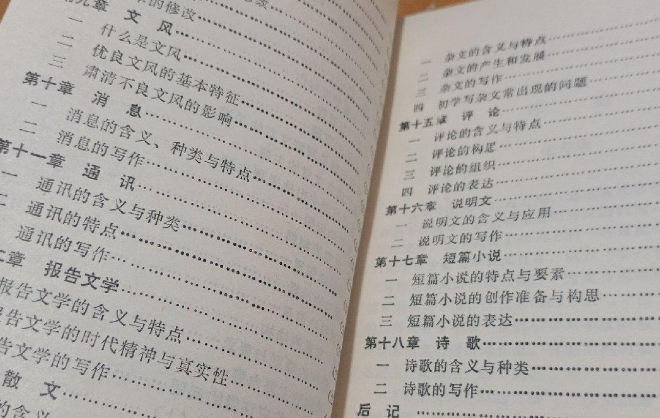 的修改
章 文 风
一 什么是文风
二 优良文风的基本特征
三 肃清不良文风的影响
第十章 消 息
一 消息的含义、种类与特点
二 消息的写作
第十一章 通 讯
一 通讯的含义与种类
二 通讯的特点
通讯的写作
章 报告文学
报告文学的含义与特点
报告文学的时代精神与真实性
告文学的写作
散 文
的含义
一 杂文的含义与特点
二 杂文的产生和发展
三 杂文的写作
四 初学写杂文常出现的问题
第十五章 评 论
一 评论的含义与特点
二 评论的构思
三 评论的组织
四 评论的表达
第十六章 说明文
一 说明文的含义与应用
二 说明文的写作
第十七章 短篇小说
一 短篇小说的特点与要素
二 短篇小说的创作准备与构思
三 短篇小说的表达
第十八章 诗 歌
一 诗歌的含义与种类
二 诗歌的写作
后 记